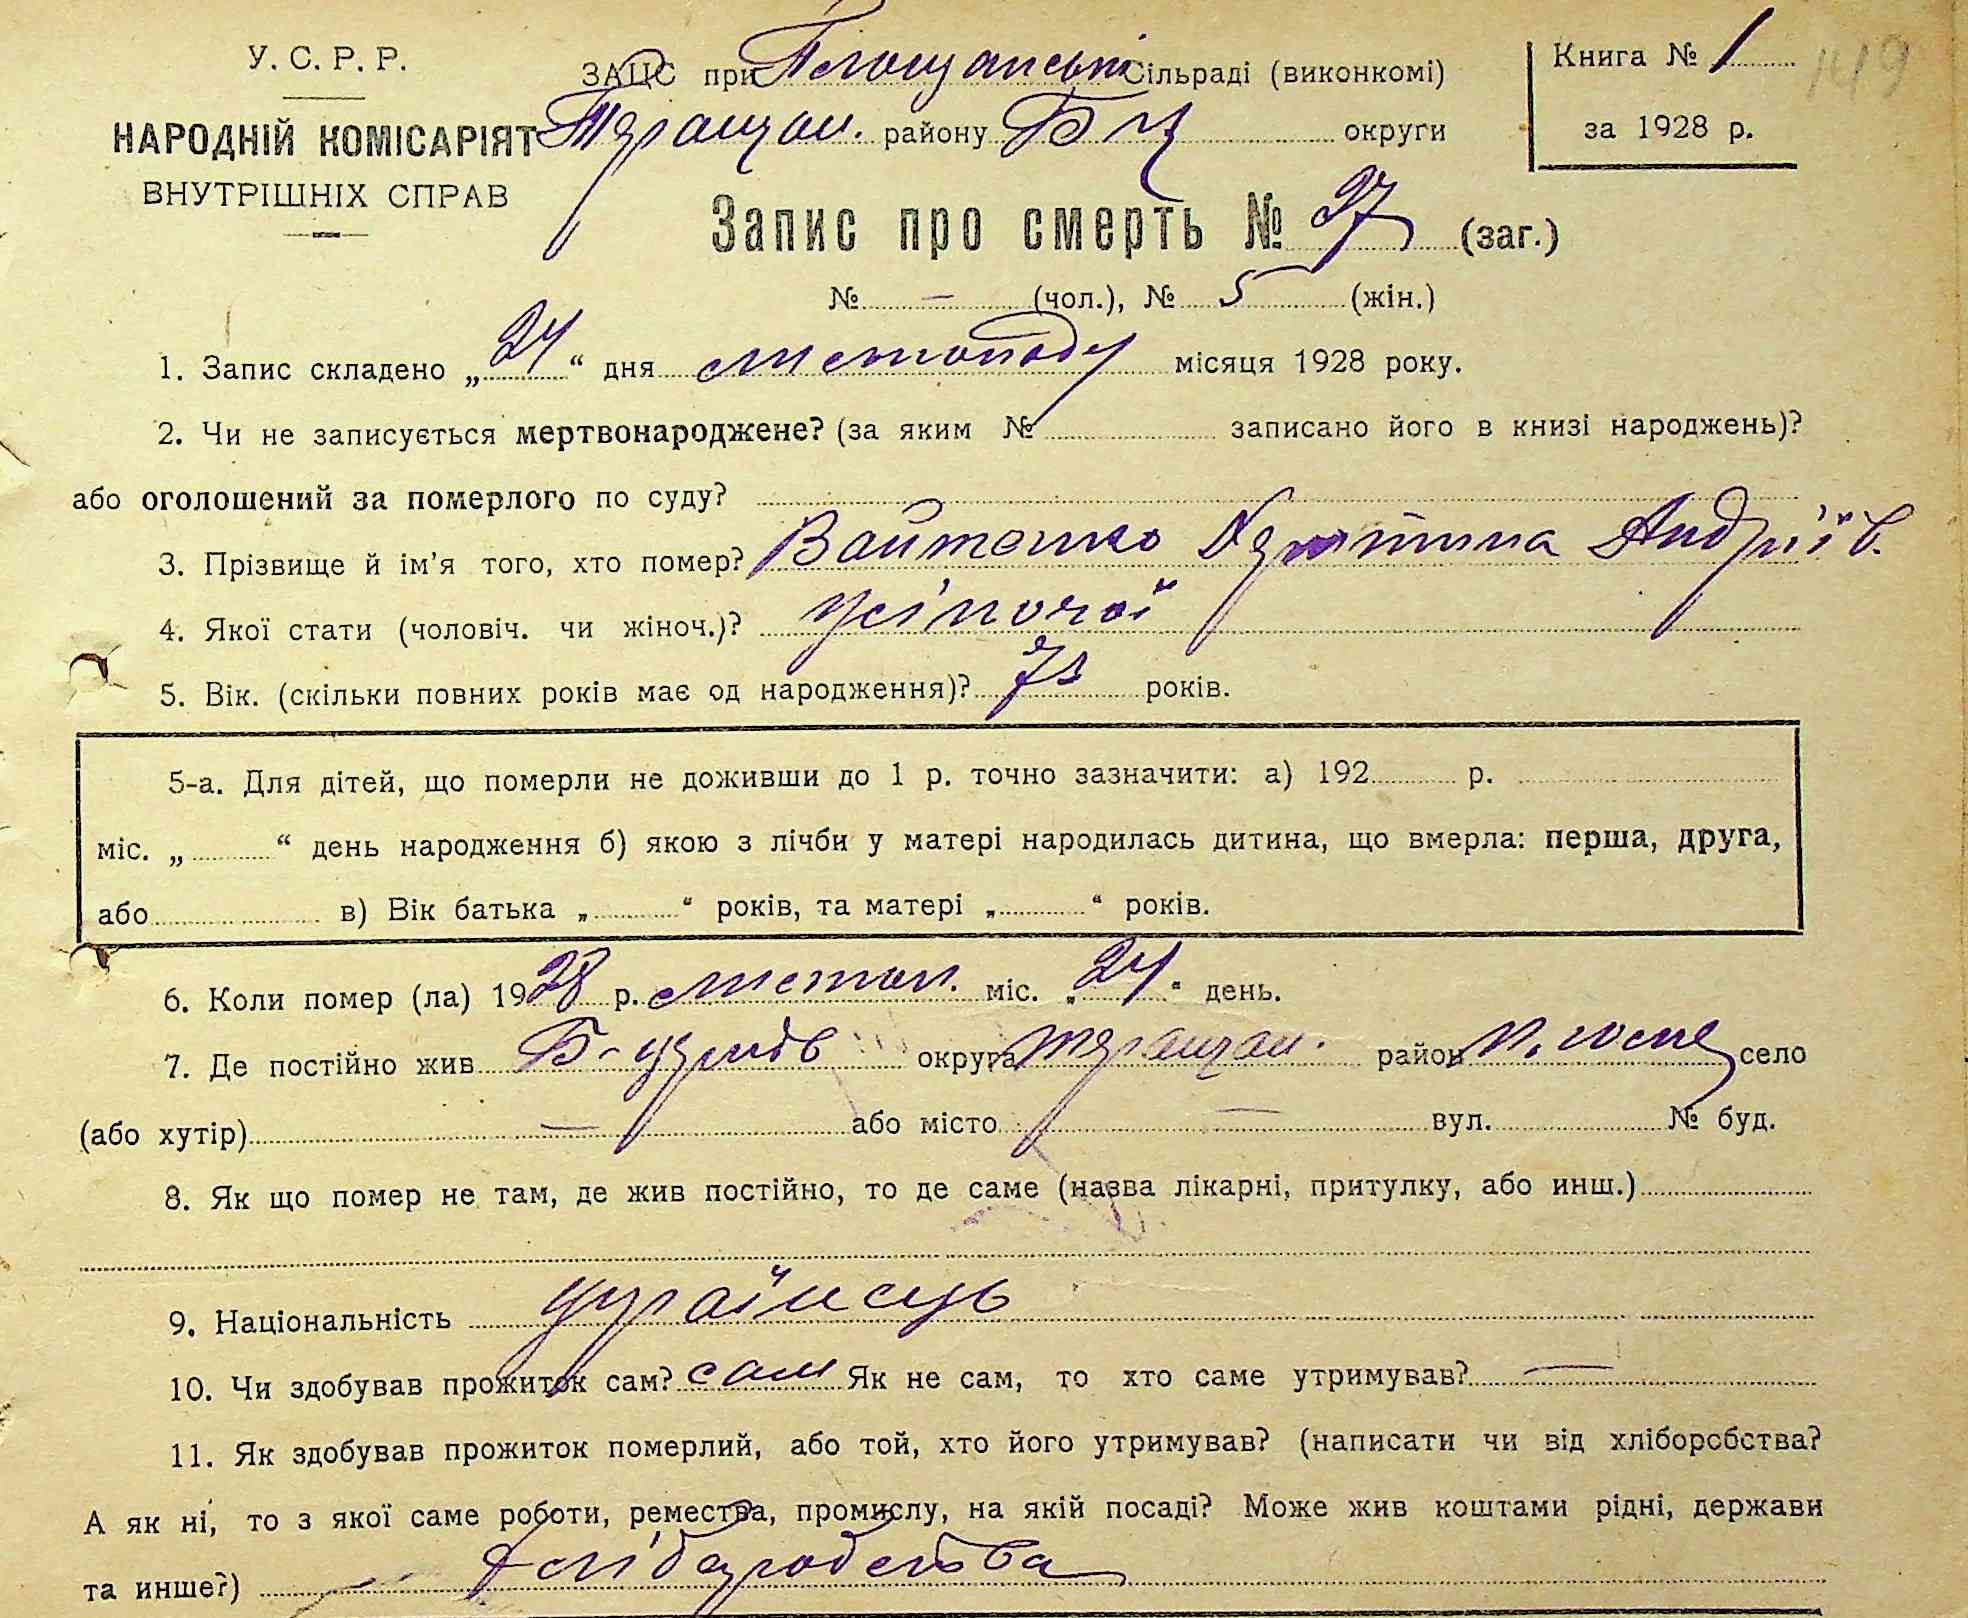 У. С. Р. Р.
НАРОДНІЙ КОМІСАРІЯТ
ВНУТРІШНІХ СПРАВ
ЗАЦС при Сільраді (виконкомі)
Таращан. району Бц округи
Книга № 1
149
за 1928 р.
Запис про смерть № 27 (заг.)
№ — (чол.), № 5 (жін.)
1. Запис складено „24“ дня листопаду місяця 1928 року.
2. Чи не записується мертвонароджене? (за яким № записано його в книзі народжень)?
або оголошений за померлого по суду?
3. Прізвище й ім'я того, хто помер? Войтенко Андріїв.
4. Якої стати (чоловіч. чи жіноч.)? жіночої
5. Вік. (скільки повних років має од народження)? років.
5-а. Для дітей, що померли не доживши до 1 р. точно зазначити: а) 192 р.
міс. „ “ день народження б) якою з лічби у матері народилась дитина, що вмерла: перша, друга,
або в) Вік батька „ “ років, та матері „ “ років.
6. Коли помер (ла) 1928 р. листоп. міс. „24“ день.
7. Де постійно жив Б-церків округа Таращан. район село
(або хутір) — або місто — вул. № буд.
8. Як що помер не там, де жив постійно, то де саме (назва лікарні, притулку, або инш.)
9. Національність українець
10. Чи здобував прожиток сам? сам Як не сам, то хто саме утримував? —
11. Як здобував прожиток померлий, або той, хто його утримував? (написати чи від хліборобства?
А як ні, то з якої саме роботи, ремества, промислу, на якій посаді? Може жив коштами рідні, держави
та инше?) хліборобства